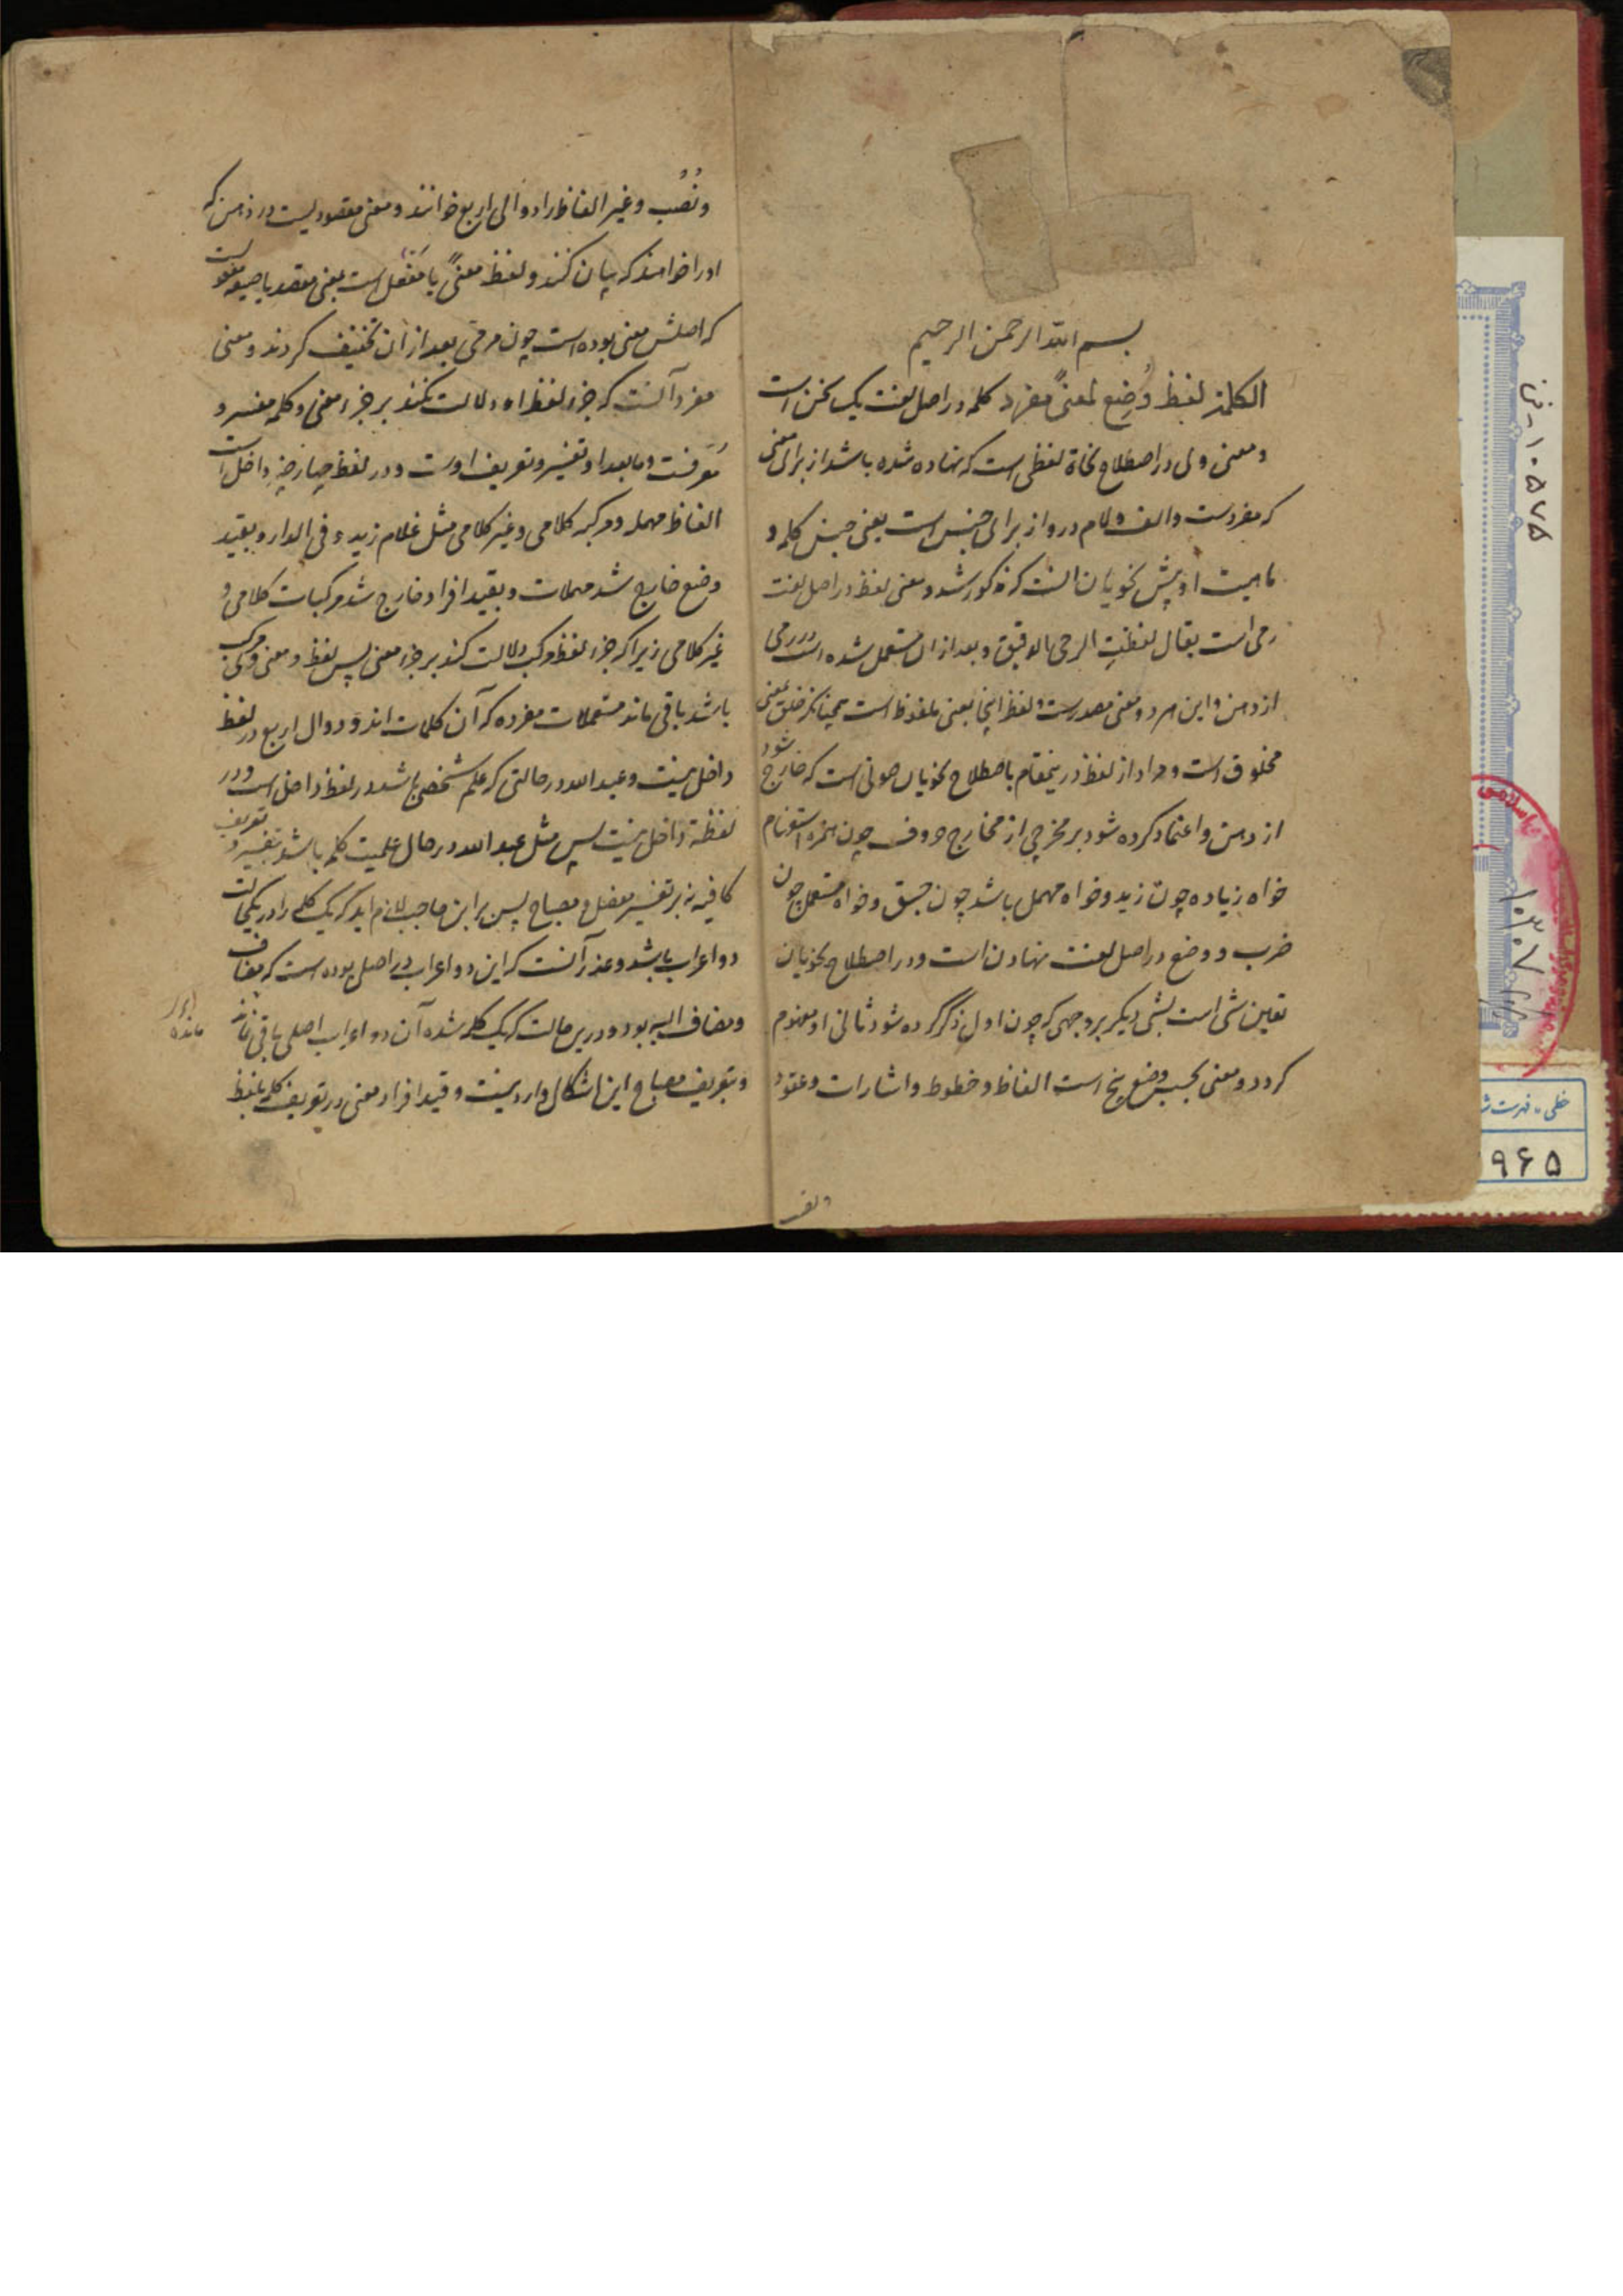 بسم الله الرحمن الرحیم
الکلمة لفظ وُضِع لمعنیً مفرد کلمه در اصل لغت یک سخن است
و معنی وی در اصطلاح نحاة لفظی است که نهاده شده باشد از برای معنی
که مفردست و الف و لام درو از برای جنس است یعنی جنس کلمه و
ماهیت او پیش نحویان انست که مذکور شد و معنی لفظ در اصل لغت
رمی است یقال لفظتِ الرحی بالدقیق و بعد از ان مستعمل شده است در رمی
از دهن و این هر دو معنی مصدرست و لفظ اینجا بمعنی ملفوظ است همچنانکه خلق بمعنی
مخلوق است و مراد از لفظ درینمقام باصطلاح نحویان صوتی است که خارج شود
از دهن و اعتماد کرده شود بر مخرجی از مخارج حروف چون همزه استفهام
خواه زیاده چون زید و خواه مهمل باشد چون جسق و خواه مستعمل چون
ضرب و وضع در اصل لغت نهادن است و در اصطلاح نحویان
تعین شی است بشی دیکر بر وجهی که چون اول ذکر کرده شود ثانی او مفهوم
کردد و معنی بحسب وضع پنج است الفاظ و خطوط و اشارات و عقود
و نصب
و نُصُب و غیر الفاظ را دوالی اربع خوانند و معنی مقصودیست در ذهن که
او را خواهند که بیان کنند و لفظ معنیً یا مَفْعَل است بمعنی مقصد یا صیغه مفعولست
که اصلش معنی بوده است چون مرمی بعد از ان تخفیف کردند و معنی
مفرد آنست که جزء لفظ او دلالت نکند بر جزء معنی و کلمه مفسر و
مُعَرفت و ما بعد او تفسیر و تعریف اوست و در لفظ داخل است
الفاظ مهمله و مرکبه کلامی و غیر کلامی مثل غلام زید و فی الدار و بقید
وضع خارج شد مهملات و بقید افراد خارج شد مرکبات کلامی و
غیر کلامی زیرا که جزء لفظ مرکب دلالت کند بر جزء معنی پس لفظ و معنی مرکب
باشد باقی ماند مستعملات مفرده که آن کلمات اند و دوال اربع در لفظ
داخل نیست و عبد الله در حالتی که علم شخصی باشد در لفظ داخل است و در
لفظة داخل نیست پس مثل عبد الله در حال علمیت کلمه باشد بتفسیر و تعریف
کافیه نه بر تفسیر مفصل و مصباح پس بر ابن حاجب لازم اید که یک کلمه را در یکحالت
دو اعراب باشد و عذر آنست که این دو اعراب در اصل بوده است که مضاف
و مضاف الیه بود و درین حالت که یک کلمه شده آن دو اعراب اصلی باقی ماند
مانده
و بتعریف مصباح این اشکال وارد نیست و قید افراد معنی در تعریف کلمه بلفظ
ن - ۱۰۵۷۵
۱۰۳۰۷
خطی - فهرست ش
۹۶۵